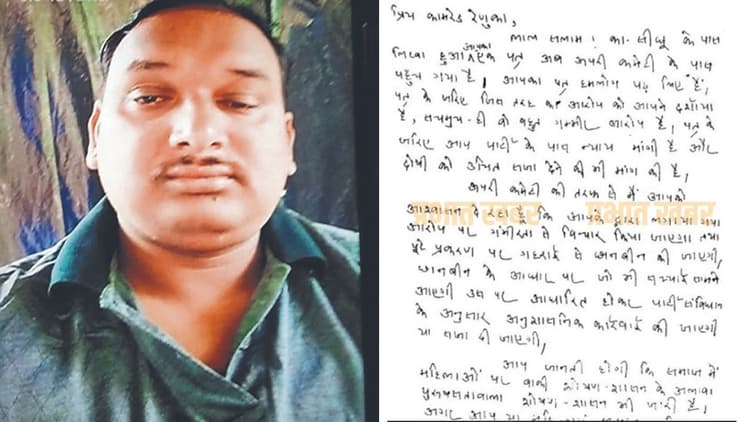 प्रिय कामरेड रेणुका,
लाल सलाम! का. लीलू के पास
लिखा हुआ आपका एक पत्र अब अपरी कमेटी के पास
पहुंच गया है, आपका पत्र हमलोग पढ़ लिए हैं,
पत्र के जरिए जिस तरह का आरोप को आपने दर्शाया
है, सचमुच-ही वो बहुत गम्भीर आरोप है, पत्र के
जरिए आप पार्टी के पास न्याय मांगी है और
दोषी को उचित सजा देने की भी मांग की है,
अपरी कमेटी की तरफ से मैं आपको
आश्वासन दे रहा है कि आपके द्वारा लगाया गया
आरोप पर गंभीरता से विचार किया जाएगा तथा
पूरे प्रकरण पर गहराई से छानबीन की जाएगी,
छानबीन के आधार पर जो भी सच्चाई सामने
आएगी उस पर आधारित होकर पार्टी संविधान
के अनुसार अनुशासनिक कार्रवाई की जाएगी
या सजा दी जाएगी,
आप जानती होगी कि समाज में
महिलाओं पर वर्गी शोषण-शासन के अलावा
पुरुषसत्तावाला शोषण-शासन भी जारी है,
अगर आप या
प्रभात खबर प्रभात खबर